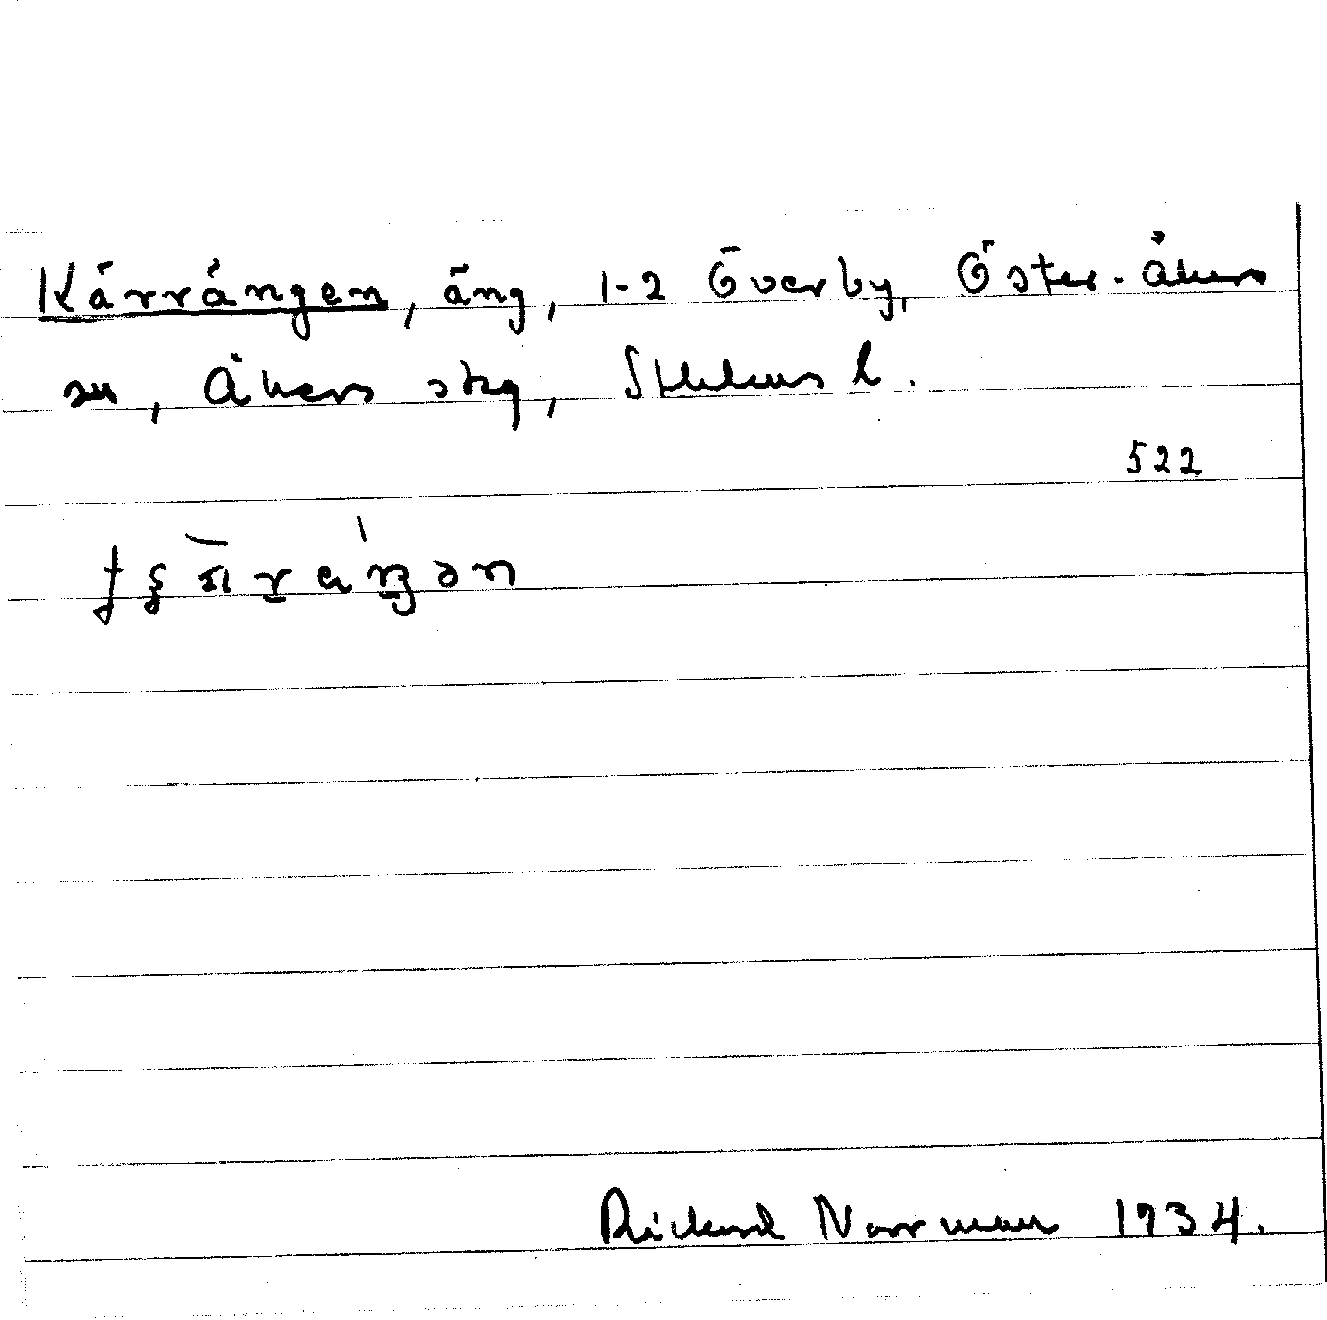 Kärrängen, äng, 1-2 Överby, Öster-Åkers
sn, Åkers skg, Sthlms l.
522
Rickard Norrman 1934.